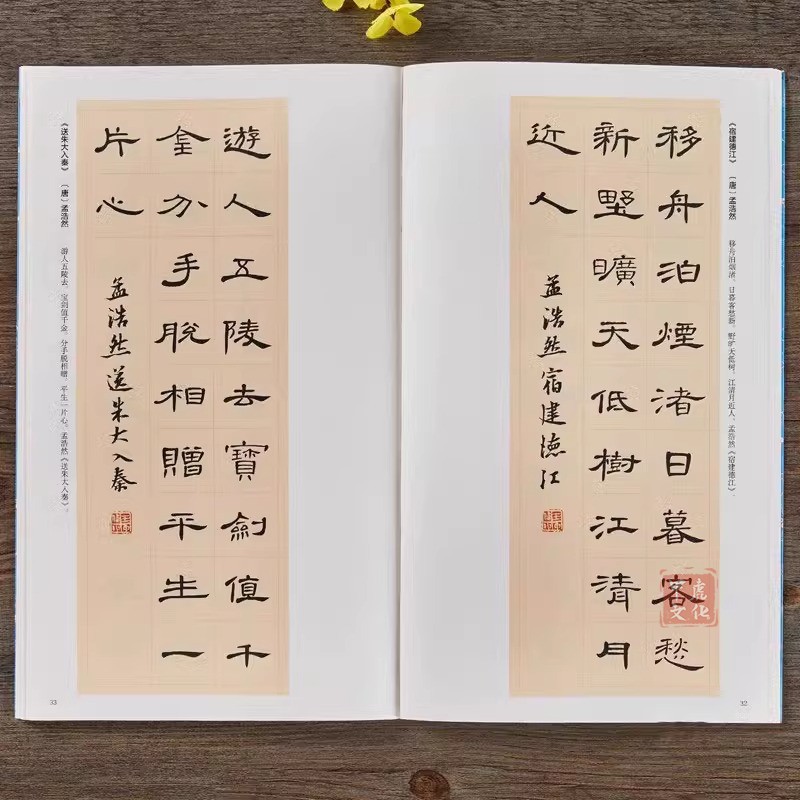 《宿建德江》 〔唐〕孟浩然
移舟泊烟渚，日暮客愁新。野旷天低树，江清月近人。孟浩然《宿建德江》。
移舟泊煙渚日暮客愁
新墅曠天低樹江清月
近人
孟浩然宿建德江
虎
文化
32
遊人五陵去寶劍值千
金分手脫相贈平生一
片心
孟浩然送朱大入秦
《送朱大入秦》 〔唐〕孟浩然
游人五陵去，宝剑值千金。分手脱相赠，平生一片心。孟浩然《送朱大入秦》。
33